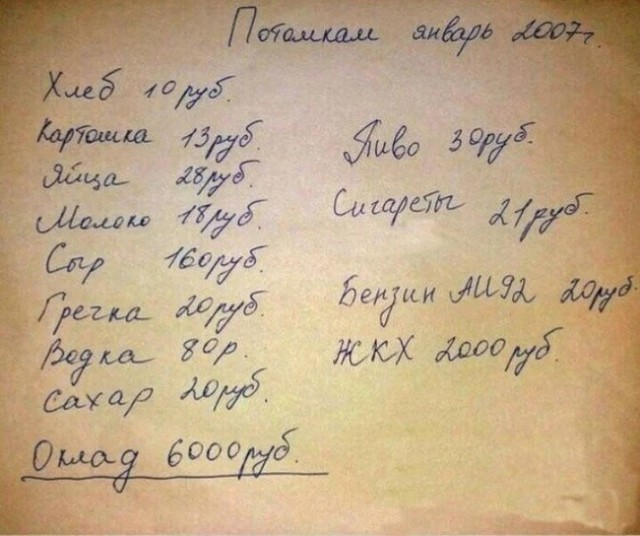 Потомкам январь 2007г.
Хлеб 10руб.
Картошка 13руб.
Яйца 28руб.
Молоко 18руб.
Сыр 160руб.
Гречка 20руб.
Водка 80р.
Сахар 20руб.
Оклад 6000руб.
Пиво 30руб.
Сигареты 21руб.
Бензин АИ92 20руб.
ЖКХ 2000руб.